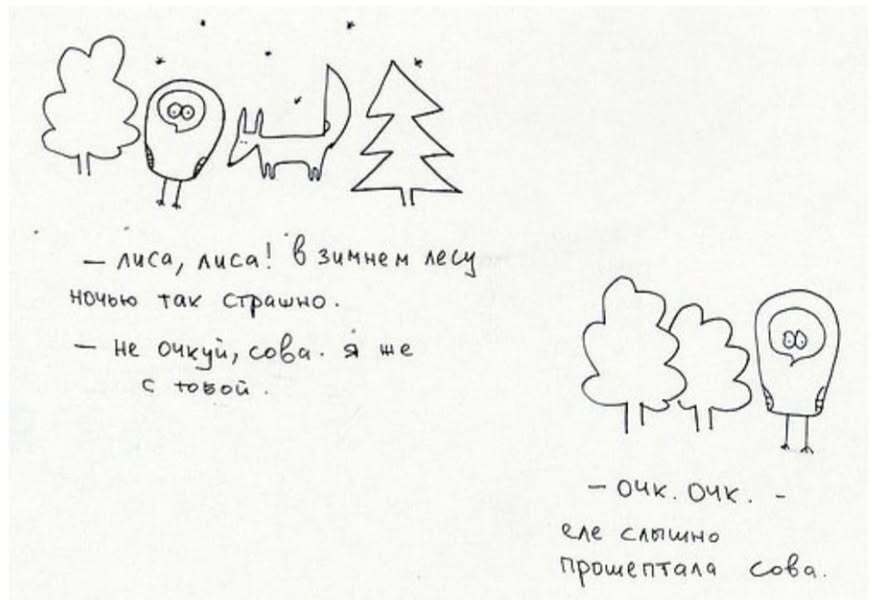 – лиса, лиса! в зимнем лесу
ночью так страшно.
– не очкуй, сова. я же
с тобой.
– очк. очк. –
еле слышно
прошептала сова.